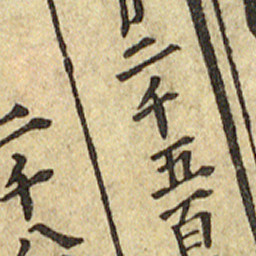 二千五百
二千八